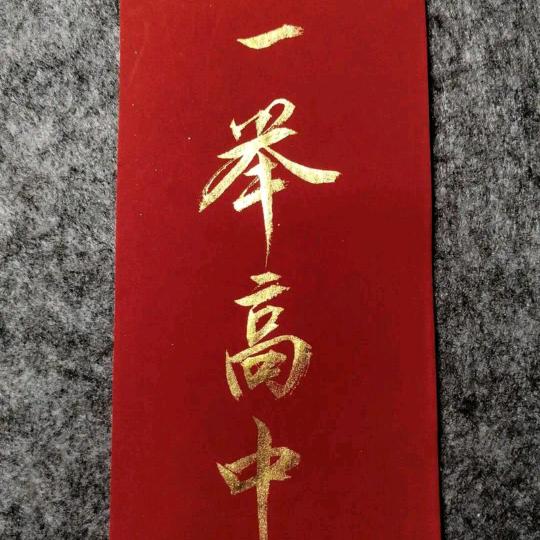 一举高中